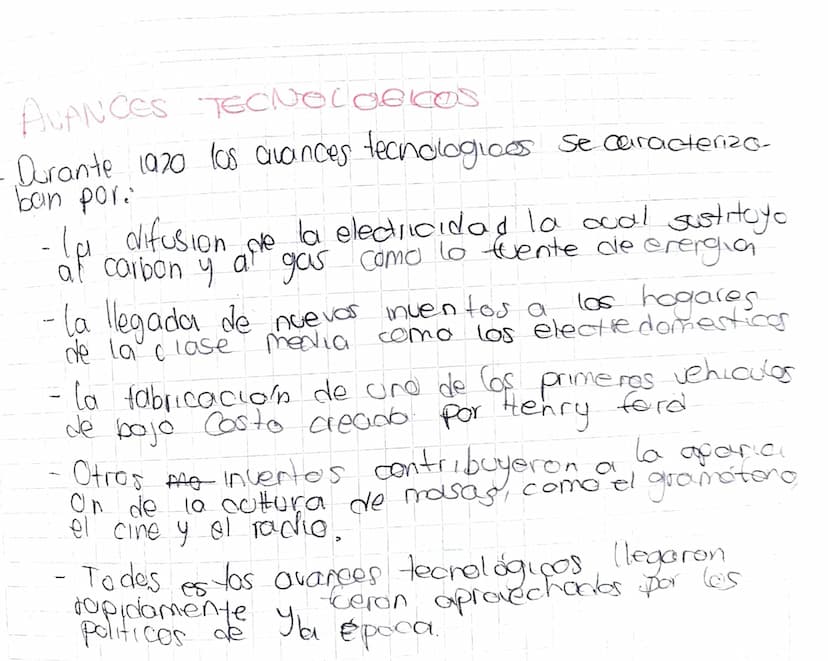 AVANCES TECNOLOGICOS
- Durante 1920 los avances tecnologicos se caracteriza-
ban por:
- La difusion de la electricidad la cual sustituyo
al carbon y al gas como la fuente de energia
- La llegada de nuevos inventos a los hogares
de la clase media como los electrodomesticos
- La fabricación de uno de los primeros vehiculos
de bajo costo creado por Henry ford
- Otros inventos contribuyeron a la aparici
on de la cultura de masas, como el gramófono,
el cine y el radio.
- Todos estos avances tecnológicos llegaron
rapidamente y fueron aprovechados por los
politicos de la época.